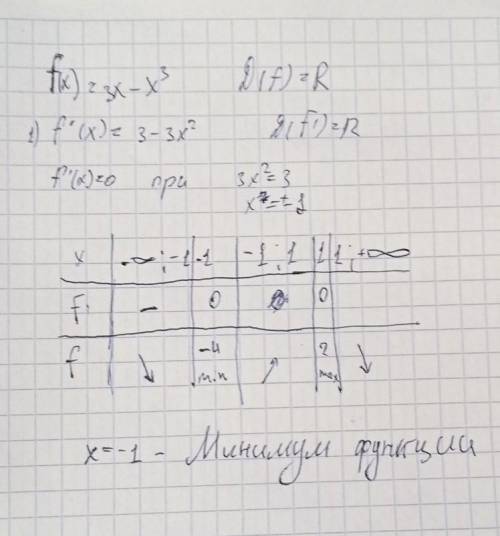 f(x) = 3x - x³ D(f) = R
1) f'(x) = 3 - 3x² D(f') = R
f'(x) = 0 при 3x² = 3
x = ± 1
x -∞; -1 -1 -1; 1 1 1; +∞
f' - 0 0
f ↘ -4 min ↗ 2 max ↘
x = -1 - Минимум функции